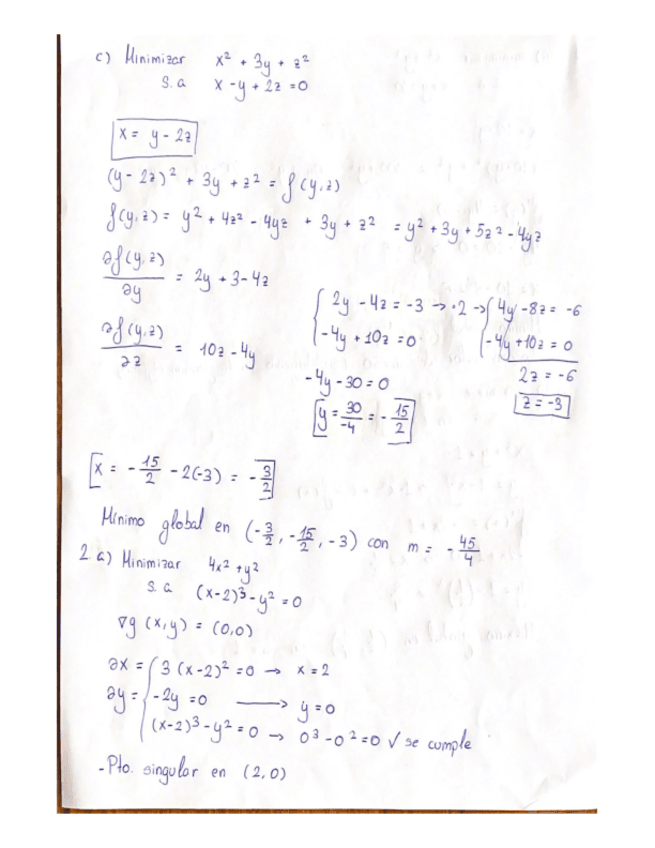 c) Minimizar x² + 3y + z²
s.a x - y + 2z = 0
x = y - 2z
(y - 2z)² + 3y + z² = f(y,z)
f(y,z) = y² + 4z² - 4yz + 3y + z² = y² + 3y + 5z² - 4yz
∂f(y,z)/∂y = 2y + 3 - 4z
∂f(y,z)/∂z = 10z - 4y
{ 2y - 4z = -3 → ·2 → { 4y - 8z = -6
-4y + 10z = 0 -4y + 10z = 0
2z = -6
z = -3
-4y - 30 = 0
y = 30/-4 = -15/2
x = -15/2 - 2(-3) = -3/2
Mínimo global en (-3/2, -15/2, -3) con m = -45/4
2. a) Minimizar 4x² + y²
s.a (x-2)³ - y² = 0
∇g (x,y) = (0,0)
∂x = { 3(x-2)² = 0 → x = 2
∂y = { -2y = 0 → y = 0
(x-2)³ - y² = 0 → 0³ - 0² = 0 ✓ se cumple
- Pto. singular en (2,0)